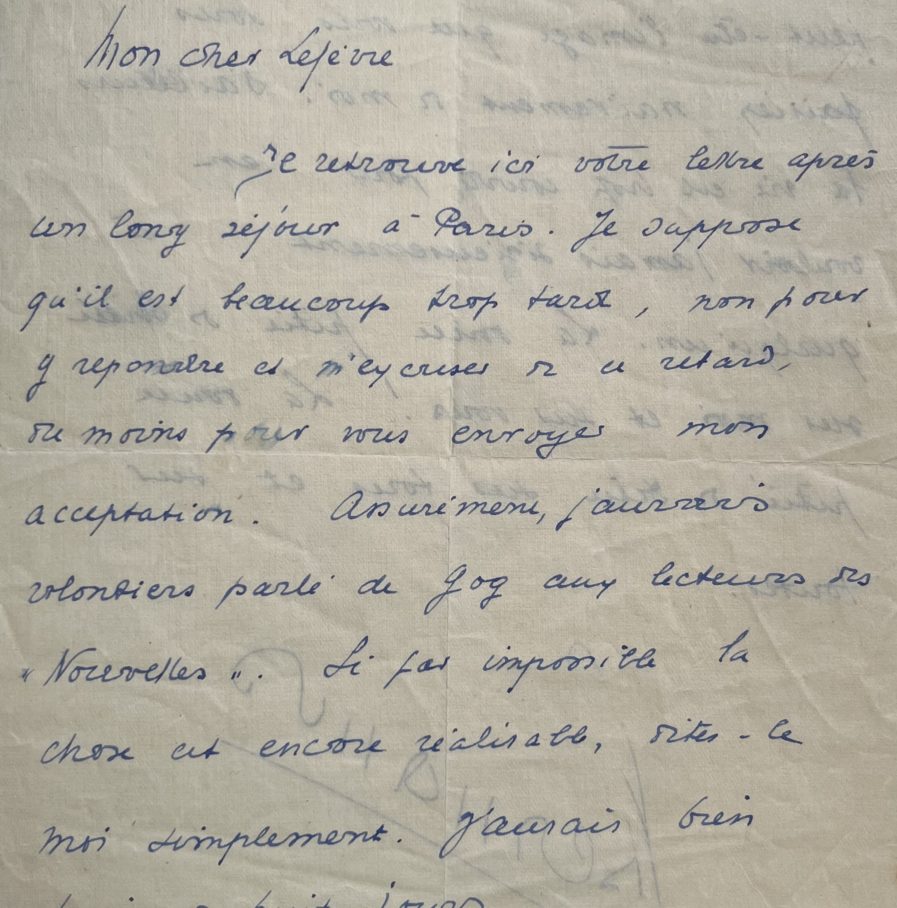 Mon cher Lefèvre
Je retrouve ici votre lettre après
un long séjour à Paris. Je suppose
qu'il est beaucoup trop tard, non pour
y repondre et m'excuser de ce retard,
du moins pour vous envoyer mon
acceptation. Assurément, j'aurais
volontiers parlé de Gog aux lecteurs des
"Nouvelles". Si par impossible la
chose est encore réalisable, dites-le
moi simplement. J'aurais bien
jours